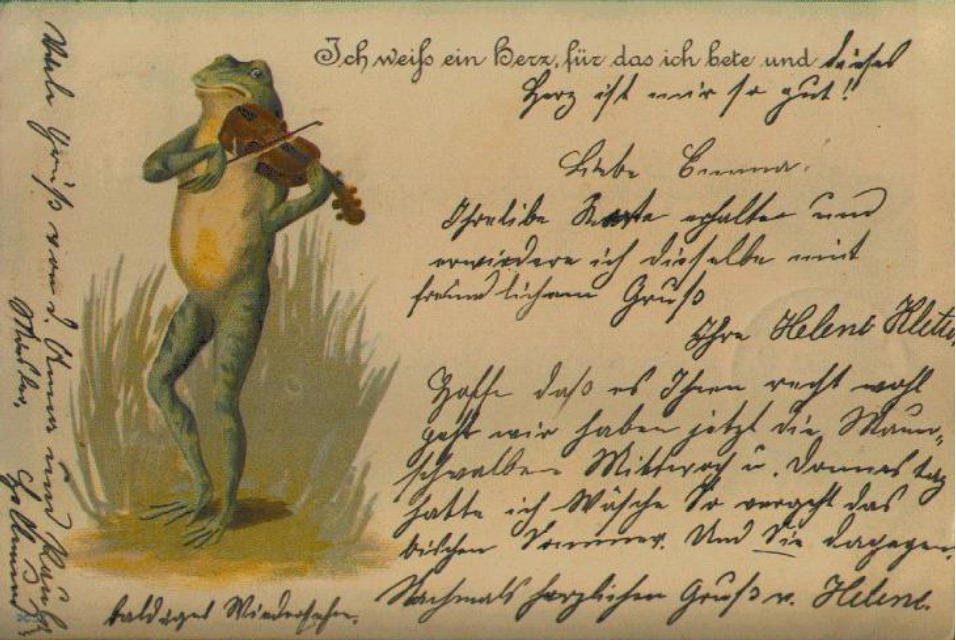 Ich weiß ein Herz, für das ich bete und dieses
Herz ist mir so gut!
Liebe Emma.
Ihre liebe Karte erhalten und
erwiedere ich dieselbe mit
freundlichem Gruß
Ihre Helene
Hoffe daß es Ihnen recht wohl
geht wir haben jetzt die
Mittwoch u. Donnerstag
hatte ich Wäsche So vergeht das
bischen Sommer. Und Sie dagegen.
Nochmals herzlichen Gruß v. Helene.
baldiges Wiedersehn.
Viele Grüße von d.